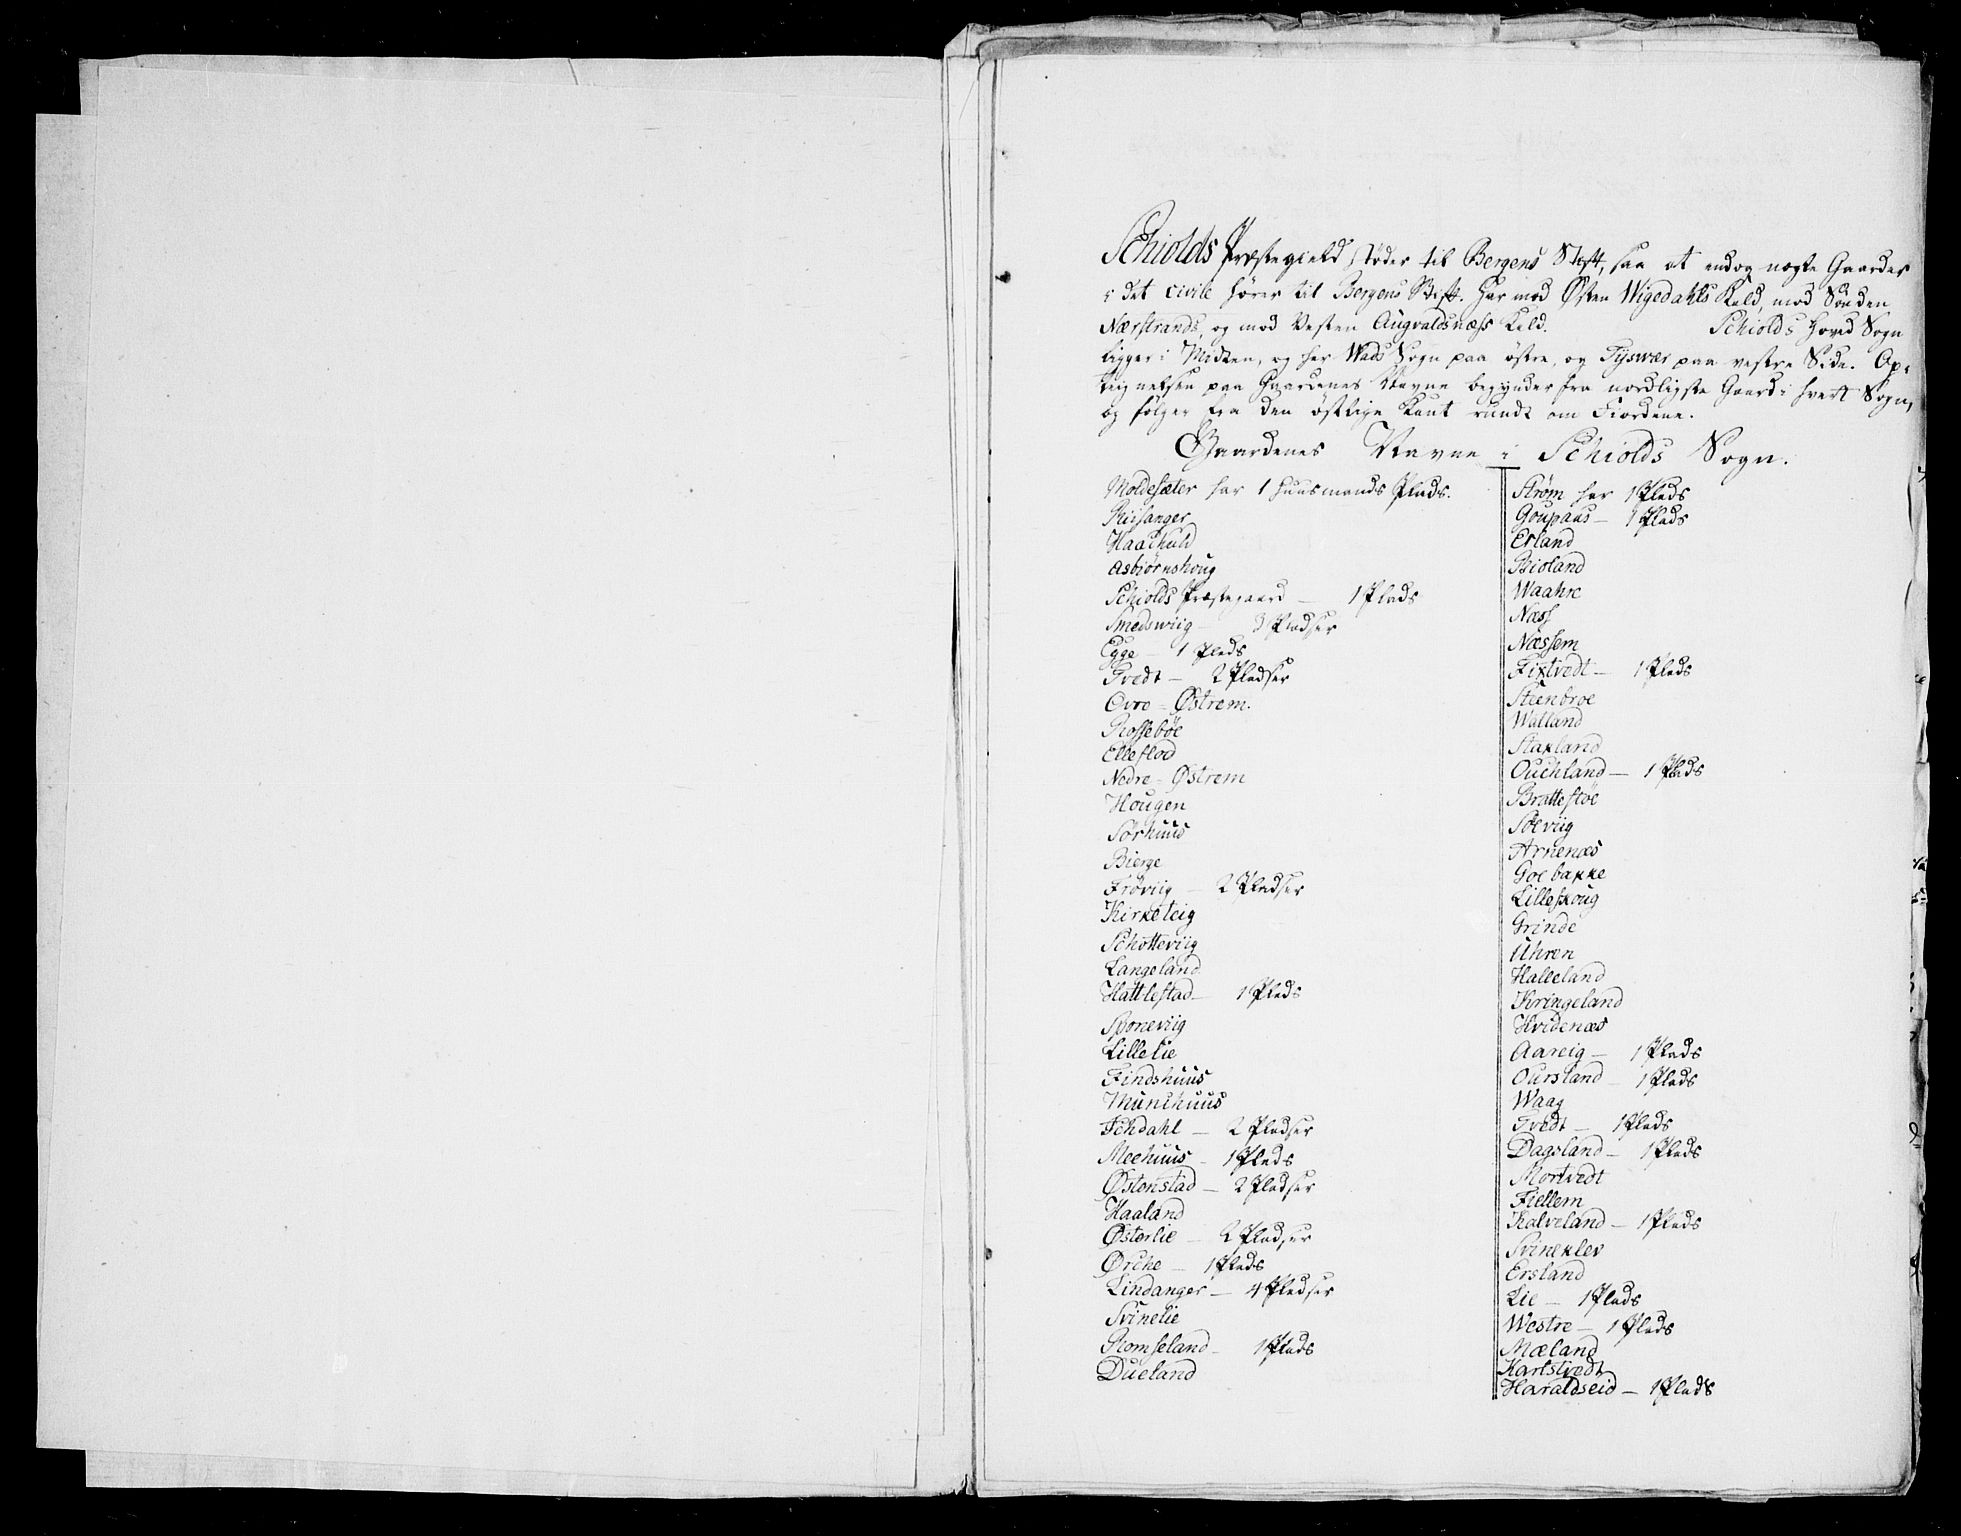 Schiolds Præstegield støder til Bergens Stift, saa at endog nogle Gaarder
i det civile hører til Bergens Stift. Har mod Østen Wigedahls Kald, mod Sønden
Nærstrands, og mod Vesten Augvaldsnæss Kald. Schiolds Hoved Sogn
ligger i Midten, og har Wads Sogn paa østre, og Tyswær paa vestre Side. Op-
teignelsen paa Gaardenes Navne begynder fra nordligste Gaard i hvert Sogn,
og følger fra den østlige Kant rundt om Fiordene.
Gaardenes Navne i Schiolds Sogn.
Moldesæter har 1 Huusmands Plads.
Riisanger
Haachuld
Asbiørnshoug
Schiolds Præstegaard — 1 Plads
Smedswiig — 3 Pladser
Egge — 1 Plads
Tvedt — 2 Pladser
Ovre-Østrem.
Rossebøe
Elleflod
Nedre-Østrem
Hougen
Sørhuus
Bierge
Frøviig — 2 Pladser
Kirketeig
Schotteviig
Langeland
Hattlestad — 1 Plads
Sponeviig
Lillelie
Findshuus
Munchuus
Ichdahl — 2 Pladser
Meehuus — 1 Plads
Østenstad — 2 Pladser
Haaland
Østerlie — 2 Pladser
Ørche — 1 Plads
Lindanger — 4 Pladser
Svinelie
Romseland — 1 Plads
Dueland
Strøm har 1 Plads
Goupaas — 1 Plads
Erland
Bioland
Waahre
Næss
Næssem
Fixtvedt — 1 Plads
Steenbroe
Walland
Stakland
Ouchland — 1 Plads
Brattestøe
Søeviig
Arnenæs
Goebakke
Lilleskoug
Grinde
Uhren
Halleland
Kringeland
Hvidenæs
Aareig — 1 Plads
Oursland — 1 Plads
Waag
Tvedt — 1 Plads
Dagsland — 1 Plads
Mortvedt
Fiellem
Kalveland — 1 Plads
Svineklev
Ersland
Lie — 1 Plads
Westre — 1 Plads
Mæland
Karlstvedt
Haraldseid — 1 Plads